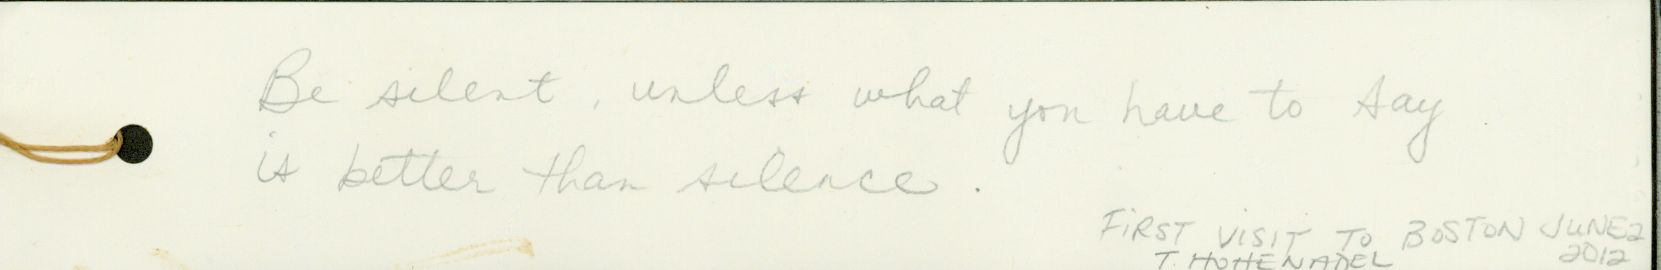 Be silent, unless what you have to say
is better than silence.
FIRST VISIT TO BOSTON JUNE 2
T. HOHENADEL 2012